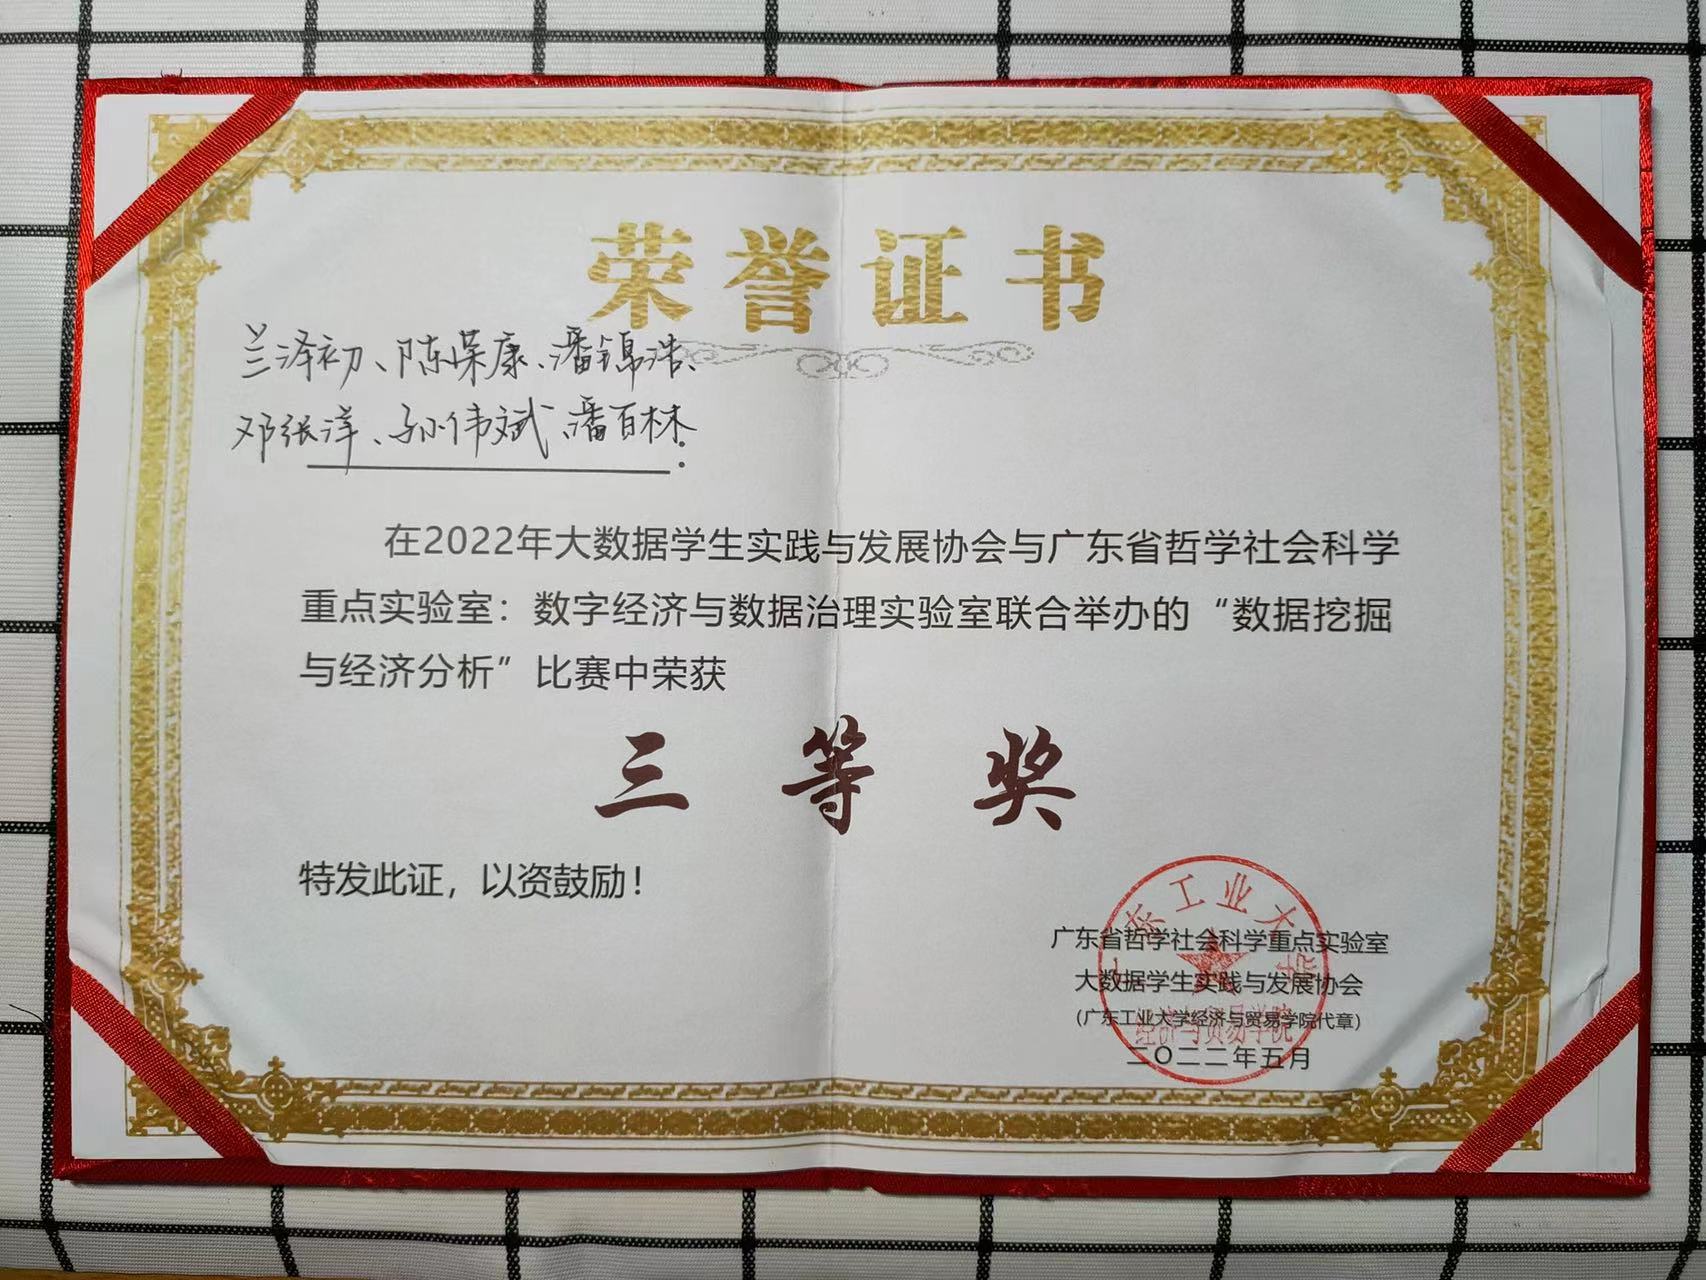 荣誉证书
兰泽初、陈葆康、潘锦浩、
邓张洋、孙伟斌、潘百林:
在2022年大数据学生实践与发展协会与广东省哲学社会科学
重点实验室：数字经济与数据治理实验室联合举办的“数据挖掘
与经济分析”比赛中荣获
三等奖
特发此证，以资鼓励！
广东省哲学社会科学重点实验室
大数据学生实践与发展协会
（广东工业大学经济与贸易学院代章）
二〇二二年五月
广东工业大学
经济与贸易学院